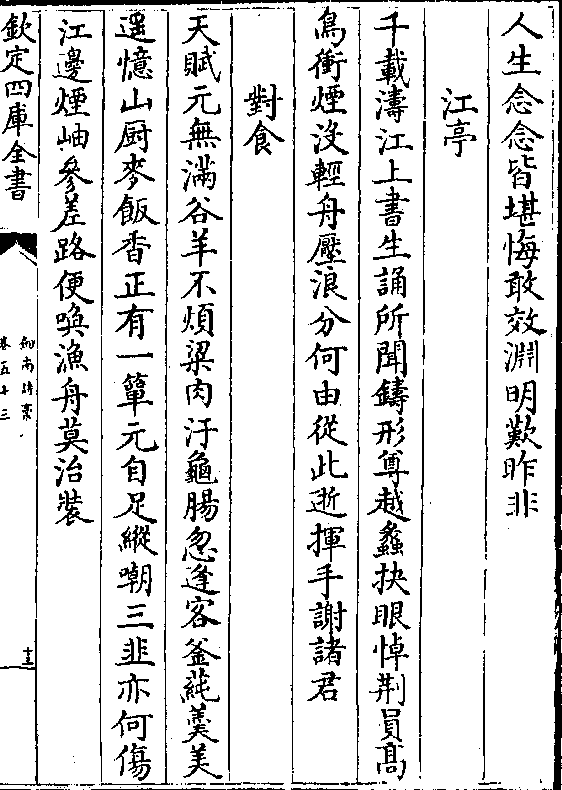 人生念念皆堪悔敢效淵明歎昨非
江亭
千載濤江上書生誦所聞鑄形尊越蠡抉眼悼荆員髙
鳥衝煙没輕舟壓浪分何由從此逝揮手謝諸君
對食
天賦元無滿谷羊不煩粱肉汙龜腸忽逢客釜蒓羮美
遥憶山厨麥飯香正有一簞元自足縱嘲三韭亦何傷
江邊煙岫參差路便喚漁舟莫治裝
欽定四庫全書
劍南詩藁
卷五十三
十三